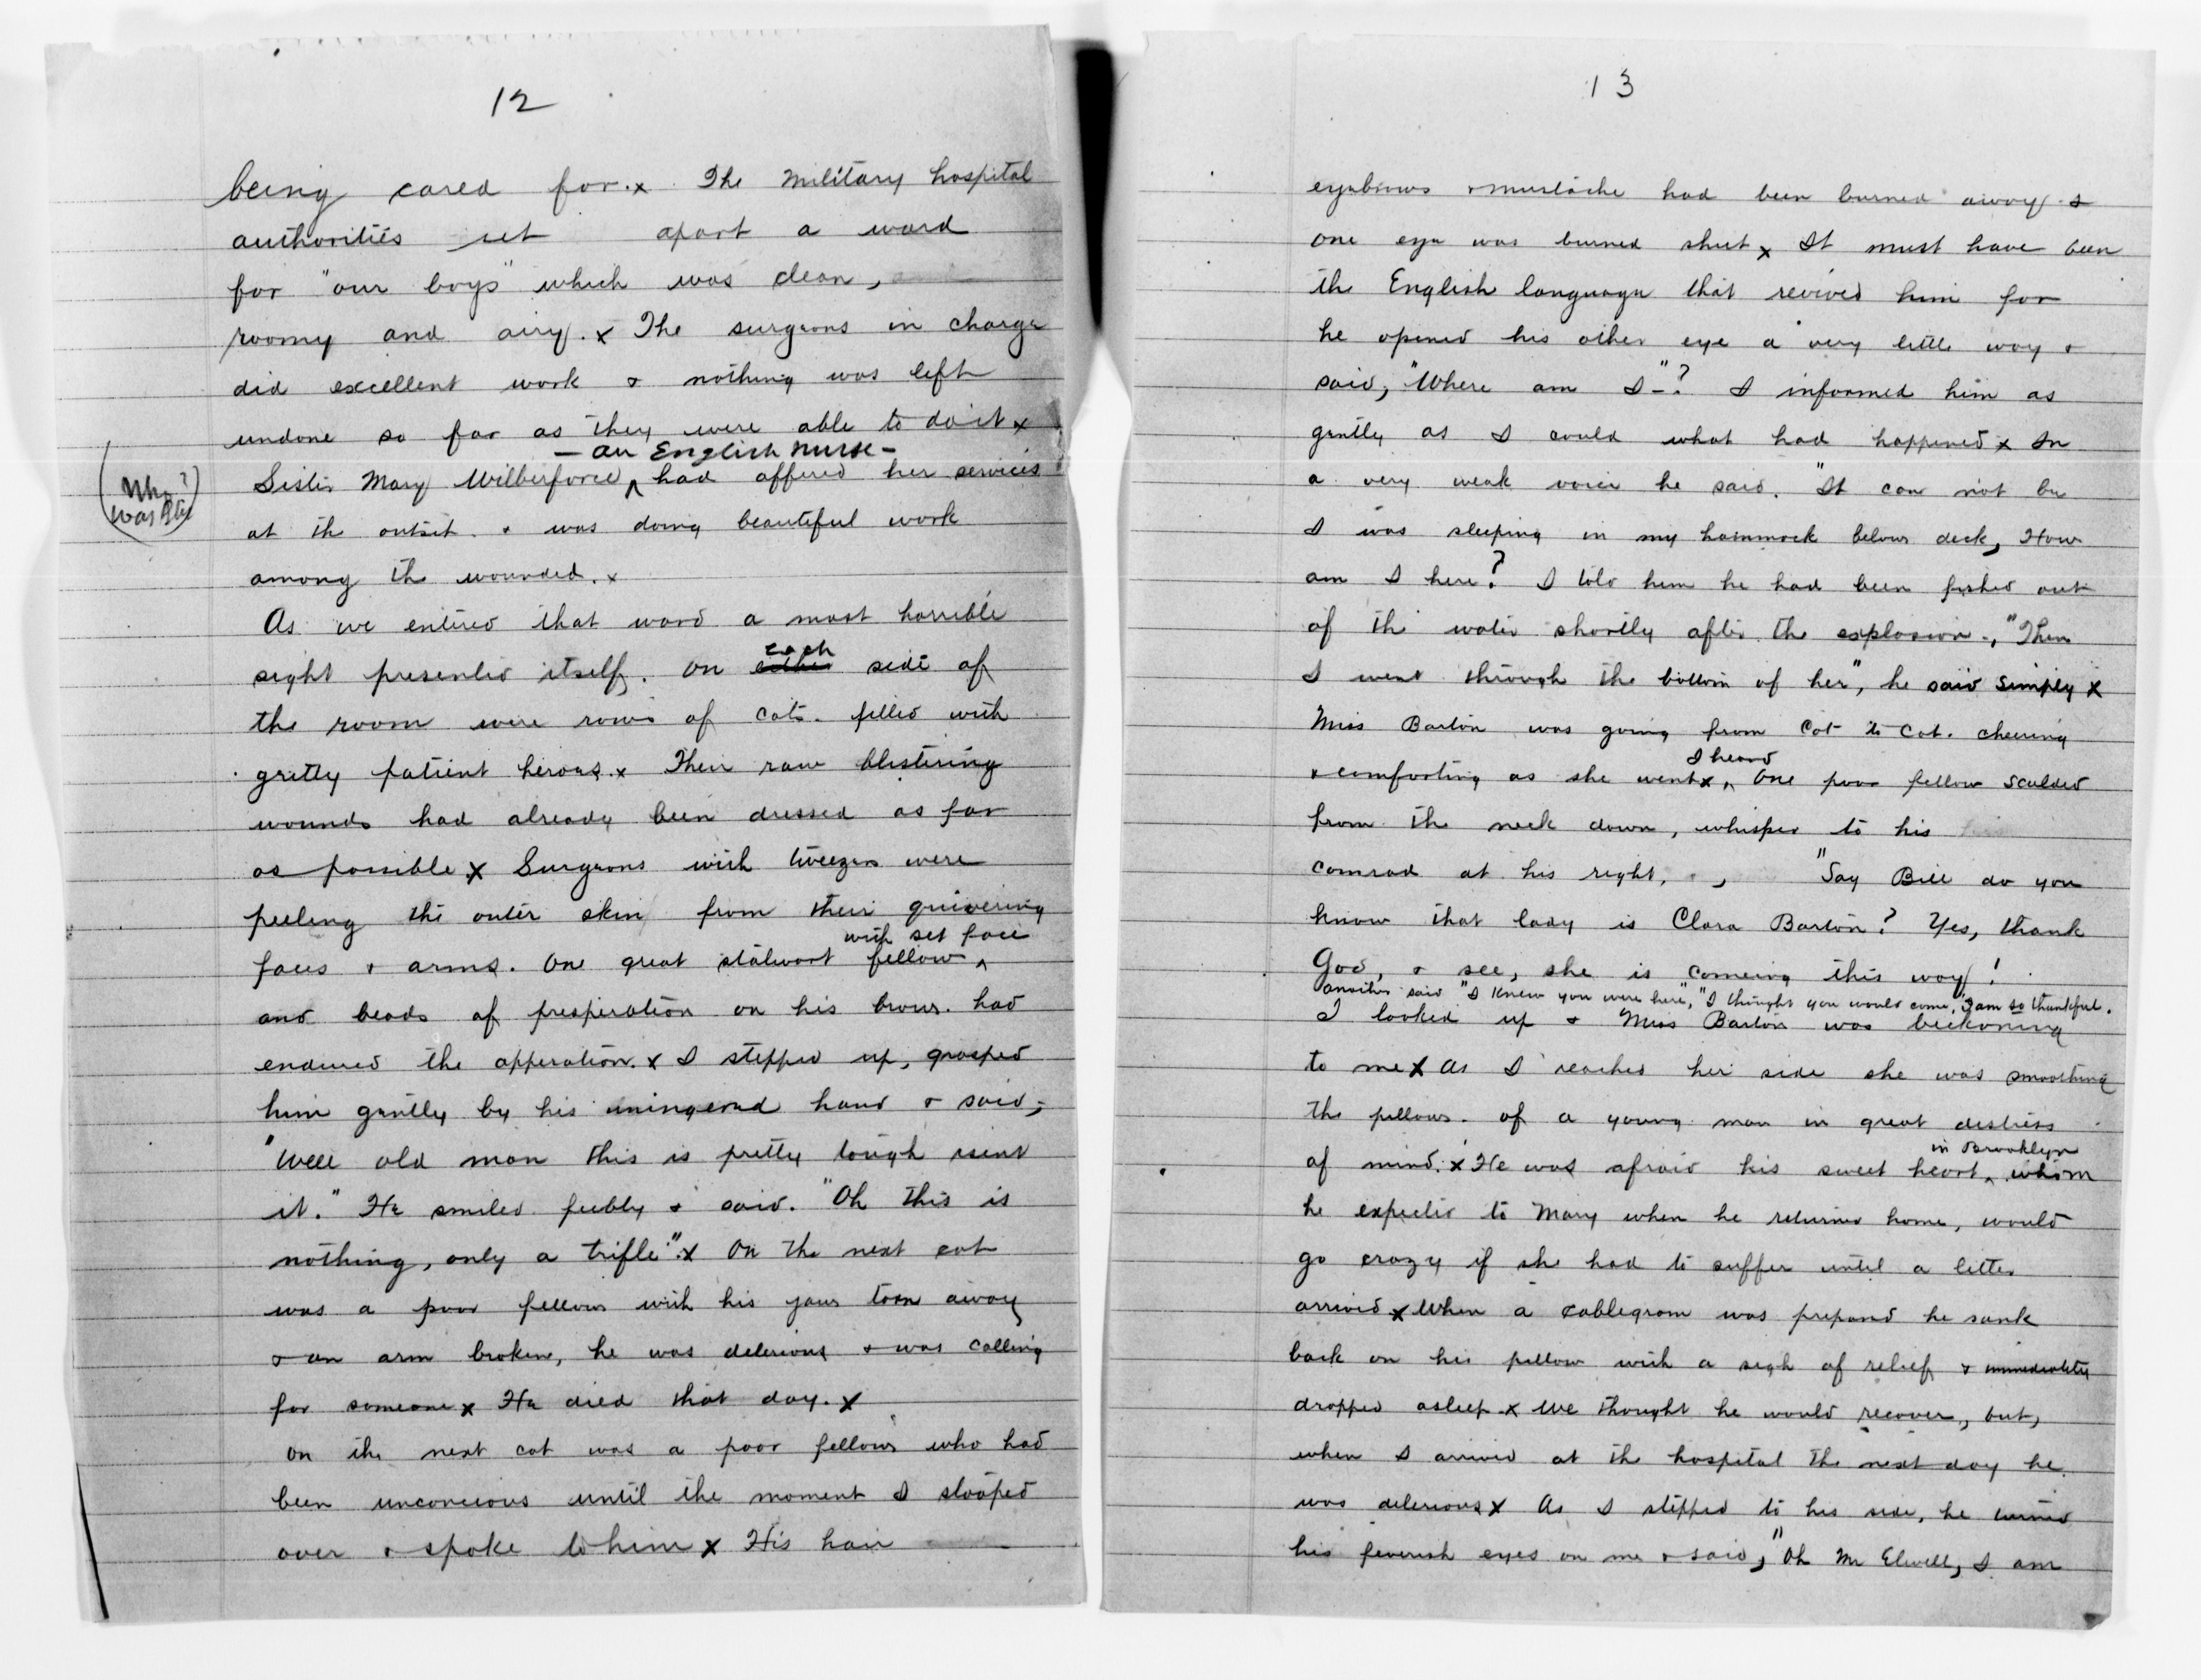 12
being cared for. x The Military hospital
authorities set apart a ward
for "our boys" which was clean,
roomy and airy. x The surgeons in charge
did excellent work & nothing was left
undone so far as they were able to do it x
- an English nurse -
(Who was she?)
Sister Mary Wilberforce ^ had offered her services
at the outset. & was doing beautiful work
among the wounded. x
As we entered that ward a most horrible
each
sight presented itself. On either side of
the room were rows of cots. filled with
gritty patient heroes. x Their raw blistering
wounds had already been dressed as far
as possible x Surgeons with tweezers were
peeling the outer skin from their quivering
with set face
faces & arms. One great stalwart fellow ^
and beads of presperation on his brow. had
endured the opperation. x I stepped up, grasped
him gently by his uningered hand & said,
"Well old man this is pretty tough isint
it." He smiled feebly & said. "Oh this is
nothing, only a trifle". x On the next cot
was a poor fellow with his jaw torn away
& an arm broken, he was delerious & was calling
for someone x He died that day. x
On the next cot was a poor fellow who had
been unconcious until the moment I stooped
over & spoke to him x His hair
13
eyebrows & mustache had been burned away &
one eye was burned shut x It must have been
the English language that revived him for
he opened his other eye a very little way &
said, "Where am I-"? I informed him as
gently as I could what had happened x In
a very weak voice he said. "It can not be
I was sleeping in my hammock below deck, How
am I here? I told him he had been fished out
of the water shortly after the explosion., "Then
I went through the bottom of her", he said simply x
Miss Barton was going from cot to cot. cheering
I heard
& comforting as she went x, ^ One poor fellow scalded
from the neck down, whisper to his
comrad at his right, "Say Bill do you
know that lady is Clara Barton? Yes, thank
God, & see, she is comeing this way!
another said "I knew you were here", "I thought you would come, I am so thankful.
I looked up & Miss Barton was beckoning
to me x As I reached her side she was smoothing
the pillows. of a young man in great distress
in Brooklyn
of mind. x He was afraid his sweet heart, ^ whom
he expected to Marry when he returned home, would
go crazy if she had to suffer until a letter
arrived x When a cablegram was prepared he sank
back on his pillow with a sigh of relief & immediately
dropped asleep. x We thought he would recover, but,
when I arrived at the hospital the next day he
was delerious x As I stepped to his side, he turned
his feverish eyes on me & said, "Oh Mr Elwell, I am